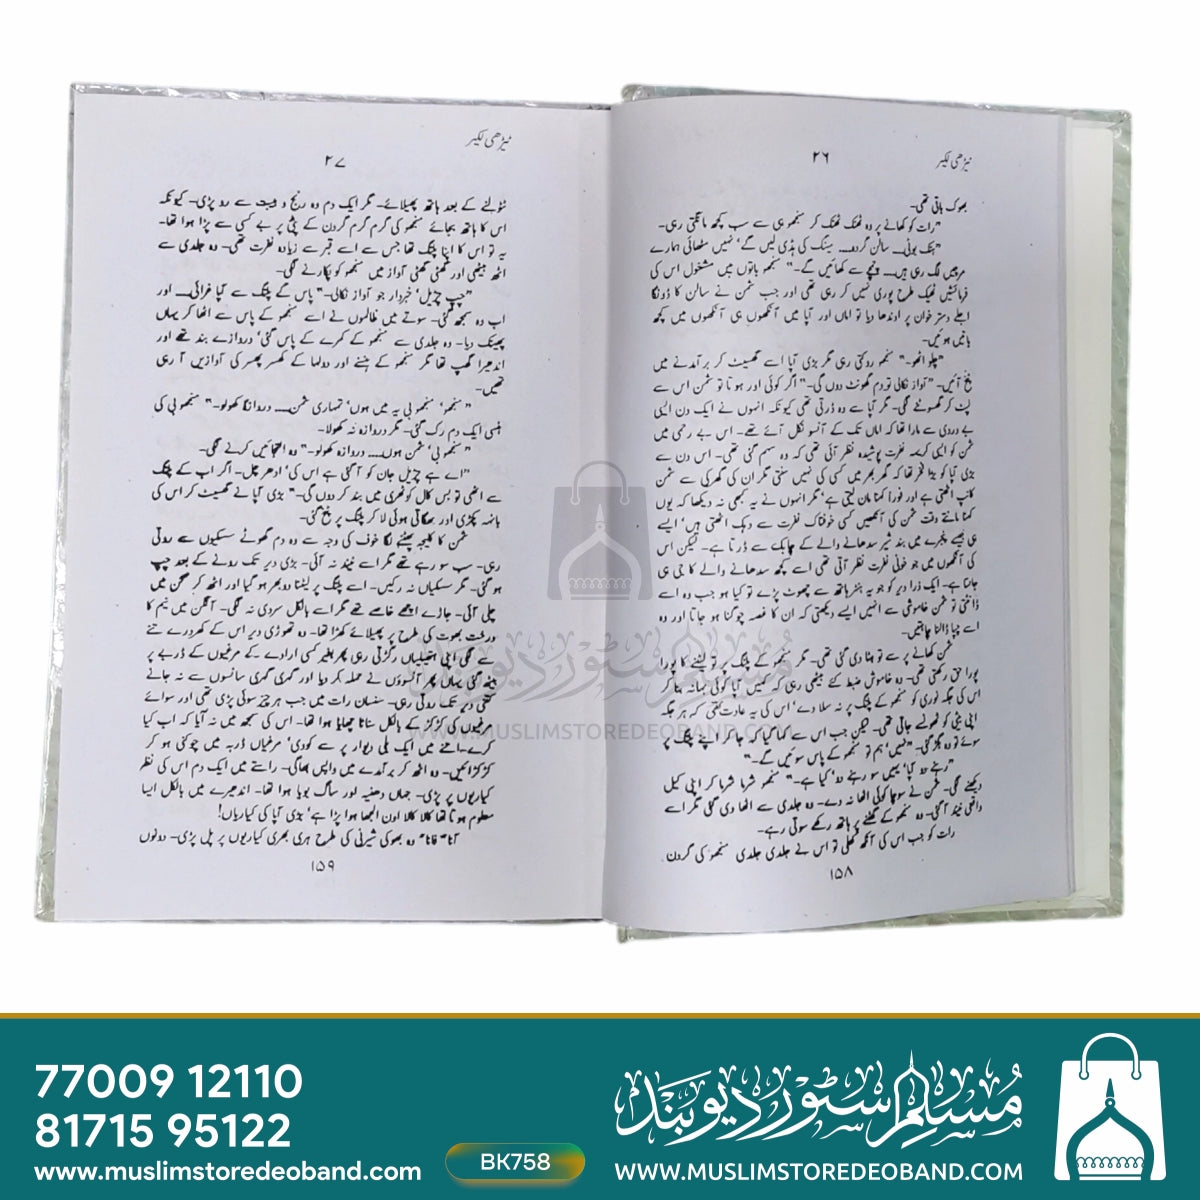 ٹیڑھی لکیر
۲۶
بھوک باقی تھی۔
"رات کو کھانے پر وہ ٹھنک ٹھنک کر سنجھو ہی سے سب کچھ مانگتی رہی۔
مرچیں لگ رہی ہیں۔۔۔ چمچے سے کھائیں گے۔" سنجھو باتوں میں مشغول اس کی
فرمائشیں ٹھیک طرح پوری نہیں کر رہی تھی اور جب شمن نے سالن کا ڈونگا
اجلے دستر خوان پر اوندھا دیا تو اماں اور آپا میں آنکھوں ہی آنکھوں میں کچھ
باتیں ہوئیں۔
"چلو اٹھو۔" سنجھو روکتی رہی مگر بڑی آپا اسے گھسیٹ کر برآمدے میں
پٹخ آئیں۔ "آواز نکالی تو دم گھونٹ دوں گی۔" اگر کوئی اور ہوتا تو شمن اس سے
لپٹ کر گھسوٹنے لگی۔ مگر آپا سے وہ ڈرتی تھی کیونکہ انہوں نے ایک دن ایسی
بے دردی سے مارا تھا کہ اماں تک کے آنسو نکل آئے تھے۔ اس بے رحمی میں
شمن کو ایسی کریہہ نفرت پوشیدہ نظر آئی تھی کہ وہ سہم گئی تھی۔ اس دن سے
بڑی آپا کو بڑا فخر تھا کہ گھر بھر میں کسی کی نہیں سنتی مگر ان کی گھرکی سے شمن
کانپ اٹھتی ہے اور فوراً کہنا مان لیتی ہے' مگر انہوں نے یہ کبھی نہ دیکھا کہ یوں
کہنا مانتے وقت شمن کی آنکھیں کسی خوفناک نفرت سے دہک اٹھتی ہیں' ایسے
ہی جیسے پنجرے میں بند شیر سدھانے والے کے چابک سے ڈرتا ہے۔ لیکن اس
کی آنکھوں میں جو خونی نفرت نظر آتی تھی اسے کچھ سدھانے والے کا جی ہی
جانتا ہے۔ ایک ذرا دیر کو جو یہ ہنٹر ہاتھ سے چھوٹ پڑے تو کیا ہو جب وہ اسے
ڈانٹتی تو شمن خاموشی سے انہیں ایسے دیکھتی کہ ان کا غصہ چوگنا ہو جاتا اور وہ
اسے چبا ڈالنا چاہتیں۔
شمن کھانے پر سے تو ہٹا دی گئی تھی۔ مگر سنجھو کے پلنگ پر تو لیٹنے کا پورا
پورا حق رکھتی تھی۔ وہ خاموش ضبط کئے بیٹھی رہی کہ کہیں آپا کوئی بہانہ بنا کر
اس کی جگہ نوری کو سنجھو کے پلنگ پر نہ سلا دے' اس کی یہ عادت تھی کہ ہر جگہ
اپنی بیٹی کو ٹھونسے جاتی تھی۔ لیکن جب اس سے کہا گیا کہ جا کر اپنے پلنگ پر
سوئے تو وہ بگڑ گئی۔ "نہیں' ہم تو سنجھو کے پاس سوئیں گے۔"
"رہنے دو آپا' یہیں سو رہنے دو' کیا ہے۔" سنجھو شرما شرما کر اپنی کیل
دیکھنے لگی۔ شمن نے سوچا کوئی اٹھا نہ دے۔ وہ جلدی سے اٹھا دی گئی مگر اسے
واقعی نیند آ گئی۔ وہ سنجھو کے گھٹنے پر ہاتھ رکھے سوتی رہے۔
رات کو جب اس کی آنکھ کھلی تو اس نے جلدی جلدی سنجھو کی گردن
۱۵۸
ٹیڑھی لکیر
۲۷
ٹٹولنے کے بعد ہاتھ پھیلائے۔ مگر ایک دم وہ رنج و ہیبت سے رو پڑی۔ کیونکہ
اس کا ہاتھ بجائے سنجھو کی گرم گرم گردن کے پٹی پر بے کسی سے پڑا ہوا تھا۔
یہ تو اس کا اپنا پلنگ تھا جس سے اسے قبر سے زیادہ نفرت تھی۔ وہ جلدی سے
اٹھ بیٹھی اور گھٹی گھٹی آواز میں سنجھو کو پکارنے لگی۔
"چپ چڑیل' خبردار جو آواز نکالی۔" پاس کے پلنگ سے آپا غرائی۔۔۔ اور
اب وہ سمجھ گئی۔ سوتے میں ظالموں نے اسے سنجھو کے پاس سے اٹھا کر یہاں
پھینک دیا۔ وہ جلدی سے سنجھو کے کمرے کے پاس گئی' دروازے بند تھے اور
اندھیرا گھپ تھا مگر سنجھو کے ہنسنے اور دولہا کے کھسر پھسر کی آوازیں آ رہی
تھیں۔
"سنجھو' سنجھو بی یہ میں ہوں' تمہاری شمن۔۔۔ دروازا کھولو۔" سنجھو بی کی
ہنسی ایک دم رک گئی۔ مگر دروازہ نہ کھولا۔
"سنجھو بی' شمن ہوں۔۔۔ دروازہ کھولو۔" وہ التجائیں کرنے لگی۔
"اے ہے چڑیل جان کو آ گئی ہے اس کی' ادھر چل۔ اگر اب کے پلنگ
سے اٹھی تو بس کال کوٹھری میں بند کر دوں گی۔" بڑی آپا نے گھسیٹ کر اس کی
بانہہ پکڑی اور بھگاتی ہوئی لا کر پلنگ پر پٹخ گئی۔
شمن کا کلیجہ پھٹنے لگا خوف کی وجہ سے وہ دم گھونٹے سسکیوں سے روتی
رہی۔ سب سو رہے تھے مگر اسے نیند نہ آئی۔ بڑی دیر تک رونے کے بعد چپ
ہو گئی۔ مگر سسکیاں نہ رکیں۔ اسے پلنگ پر لیٹنا دوبھر ہو گیا اور اٹھ کر صحن میں
چلی آئی۔ جاڑے اچھے خاصے تھے مگر اسے بالکل سردی نہ لگی۔ آنگن میں نیم کا
درخت بھوت کی طرح پر پھیلائے کھڑا تھا۔ وہ تھوڑی دیر اس کے کھردرے تنے
سے لگی اپنی ہتھیلیاں رگڑتی رہی پھر بغیر کسی ارادے کے مرغیوں کے ڈربے پر
بیٹھ گئی یہاں پھر آنسوؤں نے حملہ کر دیا اور گہری گہری سانسوں سے نہ جانے
کتنی دیر تک روتی رہی۔ سنسان رات میں جب ہر چیز سوئی پڑی تھی اور سوائے
مرغیوں کی کڑکڑ کے بالکل سناٹا چھایا ہوا تھا۔ اس کی سمجھ میں نہ آیا کہ اب کیا
کرے۔ اتنے میں ایک بلی دیوار پر سے کودی' مرغیاں ڈربہ میں چونکی ہو کر
کڑکڑائیں۔ وہ اٹھ کر برآمدے میں واپس بھاگی۔ راستے میں ایک دم اس کی نظر
کیاریوں پر پڑی۔ جہاں دھنیہ اور ساگ بویا ہوا تھا۔ اندھیرے میں بالکل ایسا
معلوم ہوتا تھا کالا کالا اون الجھا ہوا پڑا ہے' بڑی آپا کی کیاریاں!
آناً فاناً وہ بھوکی شیرنی کی طرح ہری بھری کیاریوں پر پل پڑی۔ دونوں
۱۵۹
مسلم سٹور دیوبند
WWW.MUSLIMSTOREDEOBAND.COM
77009 12110
81715 95122
www.muslimstoredeoband.com
BK758
مسلم سٹور دیوبند
WWW.MUSLIMSTOREDEOBAND.COM